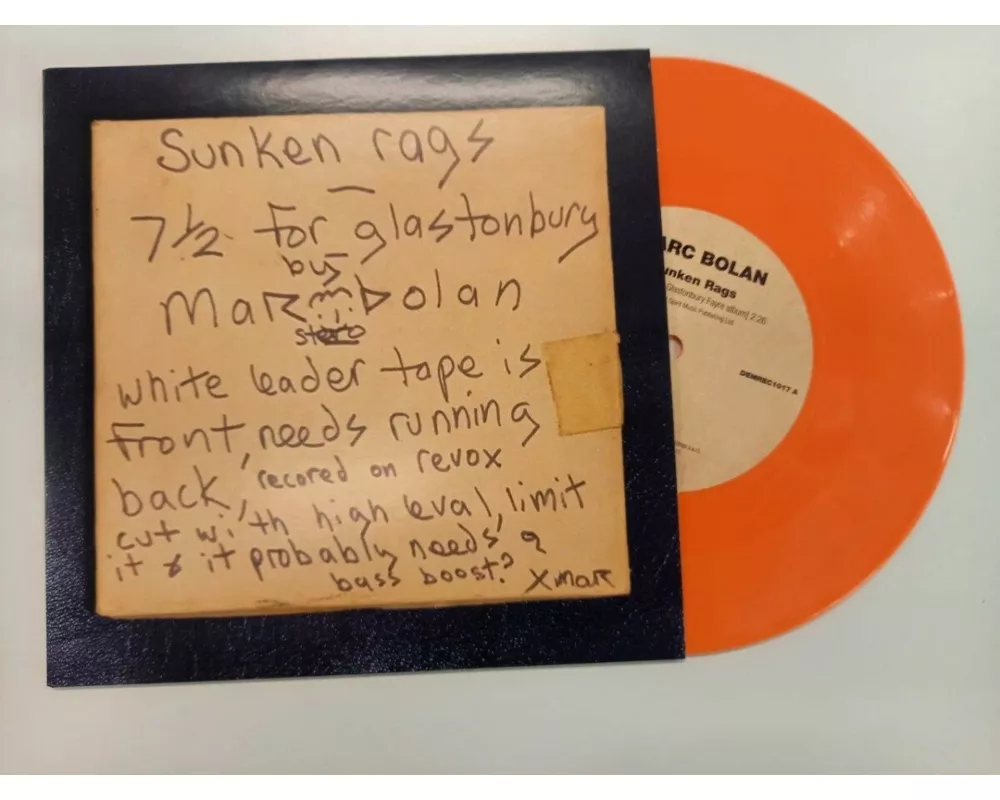 Sunken rags
7½ for glastonbury
by
Marc Bolan
stereo
white leader tape is
front, needs running
back, recored on revox
cut with high leval, limit
it & it probably needs a
bass boost? X marc
ARC BOLAN
unken Rags
Glastonbury Fayre album] 2:26
Music Publishing Ltd
DEMREC1017 A